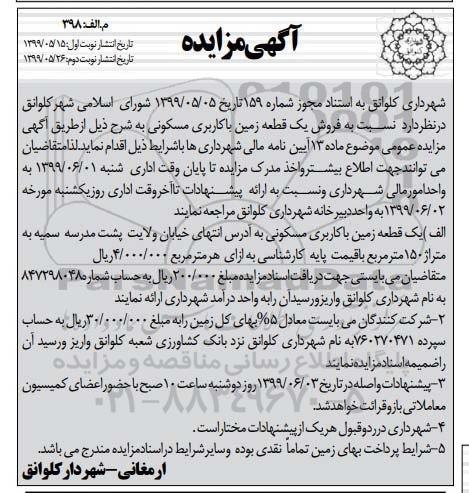 م.الف: ۳۹۸
آگهی مزایده
تاریخ انتشار نوبت اول: ۱۳۹۹/۰۵/۱۵
تاریخ انتشار نوبت دوم: ۱۳۹۹/۰۵/۲۶
شهرداری کلوانق به استناد مجوز شماره ۱۵۹ تاریخ ۱۳۹۹/۰۵/۰۵ شورای اسلامی شهر کلوانق
در نظر دارد نسبت به فروش یک قطعه زمین با کاربری مسکونی به شرح ذیل از طریق آگهی
مزایده عمومی موضوع ماده ۱۳ آیین نامه مالی شهرداری ها با شرایط ذیل اقدام نماید. لذا متقاضیان
می توانند جهت اطلاع بیشتر و اخذ مدرک مزایده تا پایان وقت اداری شنبه ۱۳۹۹/۰۶/۰۱ به
واحد امور مالی شهرداری و نسبت به ارائه پیشنهادات تا آخر وقت اداری روز یکشنبه مورخه
۱۳۹۹/۰۶/۰۲ به واحد دبیرخانه شهرداری کلوانق مراجعه نمایند
الف) یک قطعه زمین با کاربری مسکونی به آدرس انتهای خیابان ولایت پشت مدرسه سمیه به
متراژ ۱۵۰ مترمربع با قیمت پایه کارشناسی به ازای هر مترمربع ۴/۰۰۰/۰۰۰ ریال
متقاضیان می بایستی جهت دریافت اسناد مزایده مبلغ ۲۰۰/۰۰۰ ریال به حساب شماره ۸۴۷۲۹۸۰۴۸
به نام شهرداری کلوانق واریز و رسید آن را به واحد درآمد شهرداری ارائه نمایند
۲-شرکت کنندگان می بایست معادل ۵% بهای کل زمین را به مبلغ ۳۰/۰۰۰/۰۰۰ ریال به حساب
سپرده ۷۶۰۲۷۰۴۷۱ به نام شهرداری کلوانق نزد بانک کشاورزی شعبه کلوانق واریز و رسید آن
را ضمیمه اسناد مزایده نمایند
۳-پیشنهادات واصله در تاریخ ۱۳۹۹/۰۶/۰۳ روز دوشنبه ساعت ۱۰ صبح با حضور اعضای کمیسیون
معاملاتی باز و قرائت خواهد شد.
۴-شهرداری در رد و قبول هر یک از پیشنهادات مختار است.
۵-شرایط پرداخت بهای زمین تماماً نقدی بوده و سایر شرایط در اسناد مزایده مندرج می باشد.
ارمغانی-شهردار کلوانق
پایگاه اطلاع رسانی مناقصه و مزایده
۰۲۱-۸۸۳۴۹۶۷۰-۵